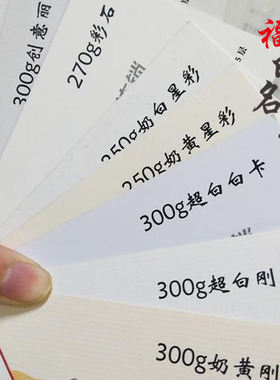 300g创意丽
270g彩石
250g奶白星彩
250g奶黄星彩
300g超白白卡
300g超白刚
300g奶黄刚
福
名